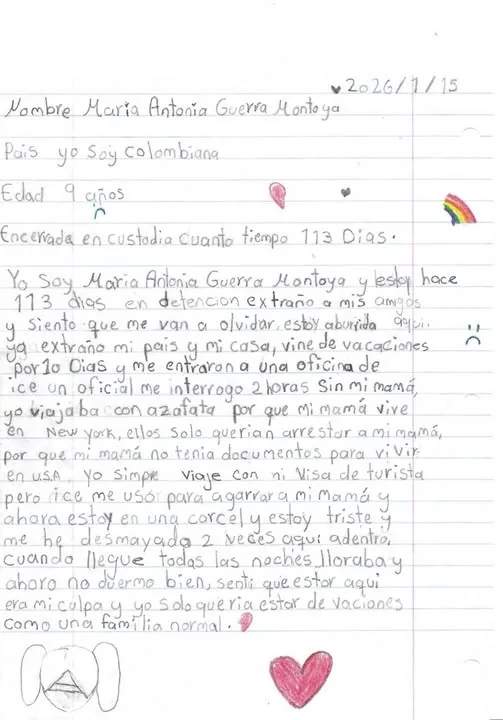 2026/1/15
Nombre Maria Antonia Guerra Montoya
Pais yo soy colombiana
Edad 9 años
Encerrada en custodia cuanto tiempo 113 Dias.
Yo soy Maria Antonia Guerra Montoya y estoy hace
113 dias en detencion extraño a mis amigos
y siento que me van a olvidar, estoy aburrida aqui.
ya extraño mi pais y mi casa, vine de vacaciones
por 10 Dias y me entraron a una oficina de
ice un oficial me interrogo 2 horas sin mi mamá,
yo viajaba con azafata por que mi mamá vive
en New york, ellos solo querian arrestar a mi mamá,
por que mi mamá no tenia documentos para vivir
en u.s.A, yo simpre viaje con ni visa de turista
pero ice me usó para agarrar a mi mamá y
ahora estoy en una carcel y estoy triste y
me he desmayado 2 veces aqui adentro,
cuando llegue todas las noches lloraba y
ahoro no duermo bien, senti que estar aqui
era mi culpa y yo solo queria estar de vaciones
como una familia normal.